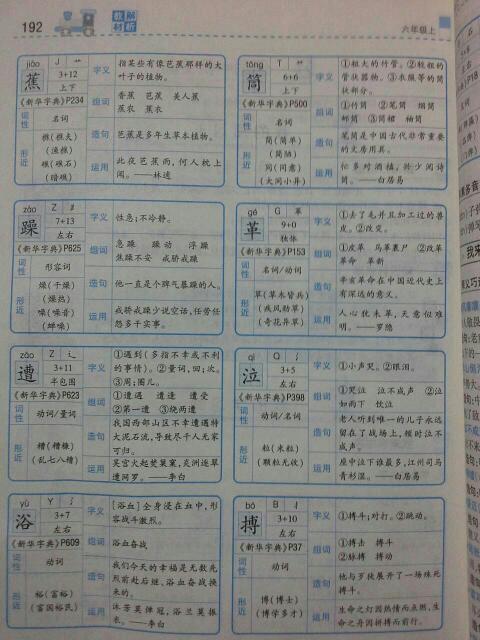 192
教材
解析
六年级上
jiāo
J 艹
蕉
3+12
上下
《新华字典》P234
词性
名词
形近
樵(樵夫)
(渔樵)
礁(礁石)
(暗礁)
字义
指某些有像芭蕉那样的大
叶子的植物。
组词
香蕉 芭蕉 美人蕉
蕉农 蕉衣
造句
芭蕉是多年生草本植物。
运用
此夜芭蕉雨,何人枕上
闻。——林逋
tǒng
T
筒
6+6
上下
《新华字典》P500
词性
名词
形近
简(简单)
(简陋)
同(同意)
(大同小异)
字义
①粗大的竹管。②较粗的
管状器物。③衣服等的筒
状部分。
组词
①竹筒 ②笔筒 烟筒
邮筒 ③筒裙 袖筒
造句
笔筒是中国古代非常重要
的文房用具。
运用
忙多对酒榼,兴少阅诗
筒。——白居易
zào
Z
躁
7+13
左右
《新华字典》P625
词性
形容词
形近
燥(干燥)
(燥热)
噪(噪音)
(蝉噪)
字义
性急;不冷静。
组词
急躁 躁动 浮躁
焦躁不安 戒骄戒躁
造句
他一直是个脾气暴躁的人。
运用
戒骄戒躁少说空话,任劳任
怨多干实事。
gé
G 革
革
9+0
独体
《新华字典》P153
词性
名词/动词
形近
草(草木皆兵)
(疾风劲草)
(奇花异草)
字义
①去了毛并且加工过的兽
皮。②改变。
组词
①皮革 马革裹尸 ②改革
革命 革新
造句
辛亥革命在中国近代史上
有深远的意义。
运用
人心犹未革,天意似难
明。——罗隐
zāo
Z 辶
遭
3+11
半包围
《新华字典》P623
词性
动词/量词
形近
糟(糟糠)
(乱七八糟)
字义
①遇到(多指不幸或不利
的事情)。②量词,回;次。
③周;圈儿。
组词
①遭遇 遭逢 遭受
②第一遭 ③绕两遭
造句
我国西部山区不幸遭遇特
大泥石流,导致尽千人无家
可归。
运用
吴宫火起焚巢窠,炎洲逐翠
遭网罗。——李白
qì
Q 氵
泣
3+5
左右
《新华字典》P398
词性
动词/名词
形近
粒(米粒)
(颗粒无收)
字义
①小声哭。②眼泪。
组词
①哭泣 泣不成声 ②泣
如雨下 饮泣
造句
老人听到唯一的儿子永远
留在了战场上,顿时泣不
成声。
运用
座中泣下谁最多,江州司马
青衫湿。——白居易
yù
Y 氵
浴
3+7
左右
《新华字典》P609
词性
动词
形近
裕(富裕)
(富国裕民)
字义
[浴血]全身浸在血中,形
容战斗激烈。
组词
浴血奋战
造句
我们今天的幸福是无数先
烈前赴后继、浴血奋战换
来的。
运用
沐芳莫弹冠,浴兰莫振
衣。——李白
bó
B 扌
搏
3+10
左右
《新华字典》P37
词性
动词
形近
博(博士)
(博学多才)
字义
①搏斗;对打。②跳动。
组词
①搏击 搏斗
②脉搏 搏动
造句
他与歹徒展开了一场殊死
搏斗。
运用
生命之灯因热情而点燃,生
命之舟因拼搏而前行。